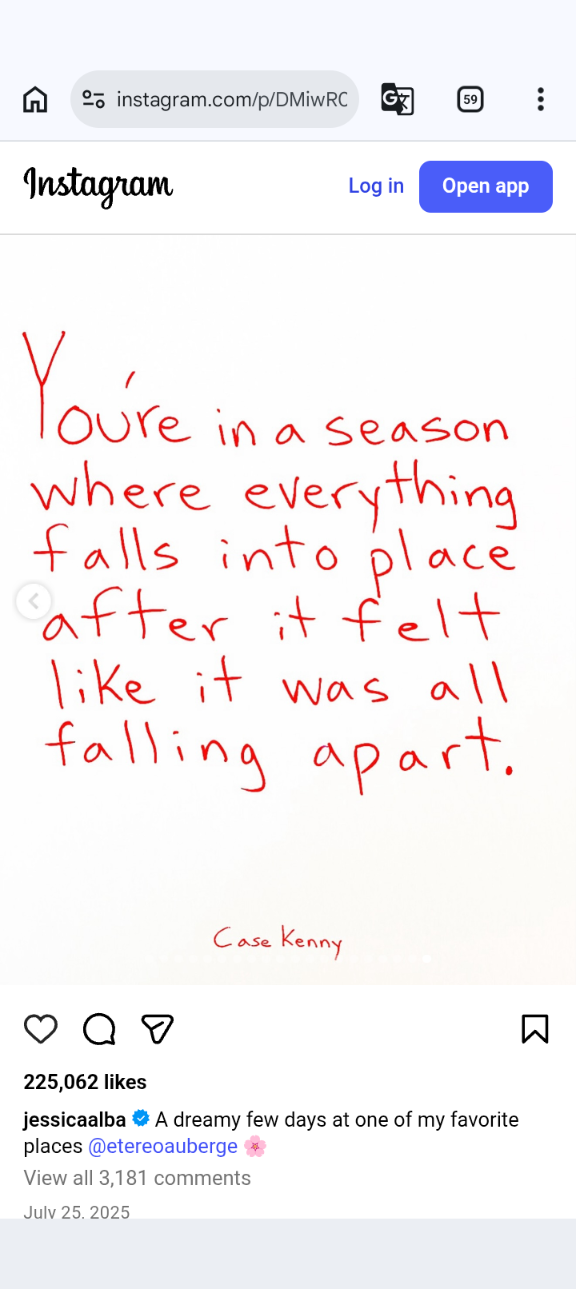 instagram.com/p/DMiwRC
59
Instagram
Log in
Open app
You're in a season
where everything
falls into place
after it felt
like it was all
falling apart.
Case Kenny
225,062 likes
jessicaalba A dreamy few days at one of my favorite
places @etereoauberge 🌸
View all 3,181 comments
July 25, 2025